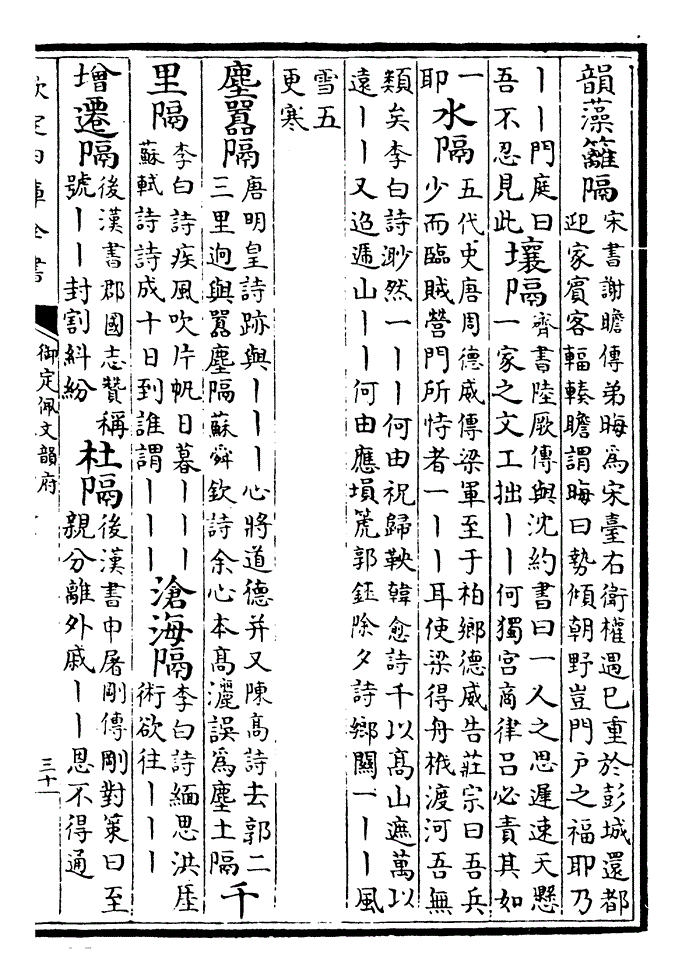 韻藻籬隔
宋書謝瞻傳弟晦為宋臺右衛權遇已重於彭城還都
迎家賓客輻輳瞻謂晦曰勢傾朝野豈門户之福耶乃
丨丨門庭曰
吾不忍見此
壤隔
齊書陸厥傳與沈約書曰一人之思遲速天懸
一家之文工拙丨丨何獨宫商律吕必責其如
一
耶
水隔
五代史唐周德威傳梁軍至于柏鄉德威告莊宗曰吾兵
少而臨賊營門所恃者一丨丨耳使梁得舟栰渡河吾無
類矣李白詩渺然一丨丨何由祝歸鞅韓愈詩千以髙山遮萬以
遠丨丨又迢遞山丨丨何由應塤箎郭鈺除夕詩鄉關一丨丨風
雪五
更寒
塵囂隔
唐明皇詩跡與丨丨丨心將道德并又陳髙詩去郭二
三里迥與囂塵隔蘇舜欽詩余心本髙灑誤為塵土隔
千
里隔
李白詩疾風吹片帆日暮丨丨丨
蘇軾詩詩成十日到誰謂丨丨丨
滄海隔
李白詩緬思洪厓
術欲往丨丨丨
增遷隔
後漢書郡國志贊稱
號丨丨封割糾紛
杜隔
後漢書申屠剛傳剛對策曰至
親分離外戚丨丨恩不得通
欽定四庫全書
御定佩文韻府
三十一